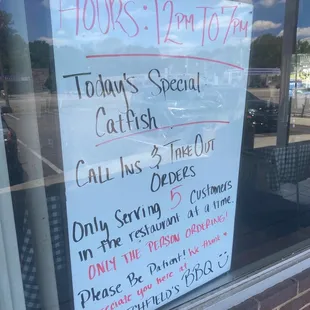 HOURS: 12PM TO 7PM
Today's Special
Catfish
CALL INS & TAKE OUT
ORDERS
Only Serving 5 Customers
in the restaurant at a time.
ONLY THE PERSON ORDERING!
Please Be Patient! We thank &
appreciate you here at
TCHFIELD'S BBQ